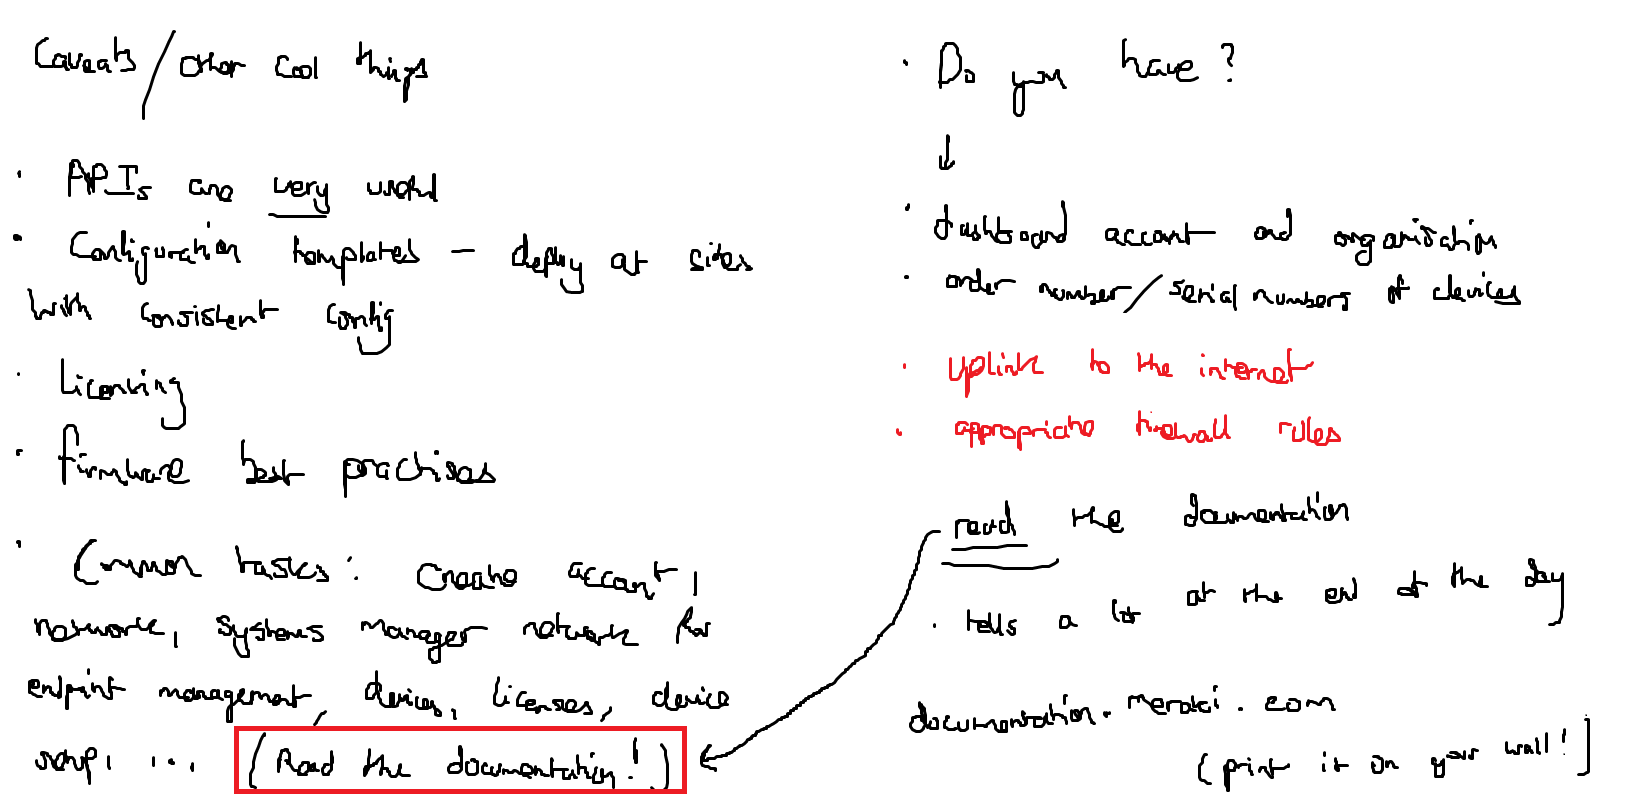 Caveats / other cool things
· APIs are very useful
· Configuration templates – deploy at sites
with consistent config
· Licensing
· firmware best practises
· Common tasks: Create account,
network, systems manager network for
endpoint management, devices, licenses, device
setup, ... (Read the documentation!)
· Do you have?
↓
· dashboard account and organisation
· order number / serial numbers of devices
· uplink to the internet
· appropriate firewall rules
read the documentation
· tells a lot at the end of the day
documentation.meraki.com
(print it on your wall!)